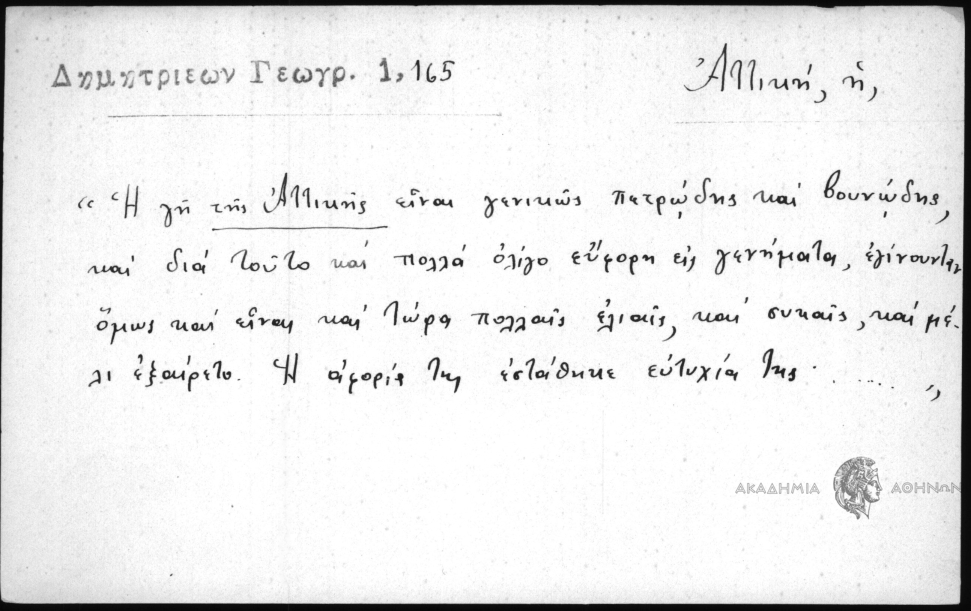 Δημητριεων Γεωγρ. 1, 165
Ἀττική, ἡ,
« Ἡ γῆ τῆς Ἀττικῆς εἶναι γενικῶς πετρῴδης καὶ βουνῴδης,
καὶ διά τοῦτο καὶ πολλά ὀλίγο εὔφορη εἰς γενήματα, ἐγίνουνταν
ὅμως καὶ εἶναι καὶ τώρα πολλαῖς ἐλιαῖς, καὶ συκαῖς, καὶ μέ-
λι ἐξαίρετο. Ἡ ἀφορία της ἐστάθηκε εὐτυχία της . ..... »
ΑΚΑΔΗΜΙΑ ΑΘΗΝΩΝ